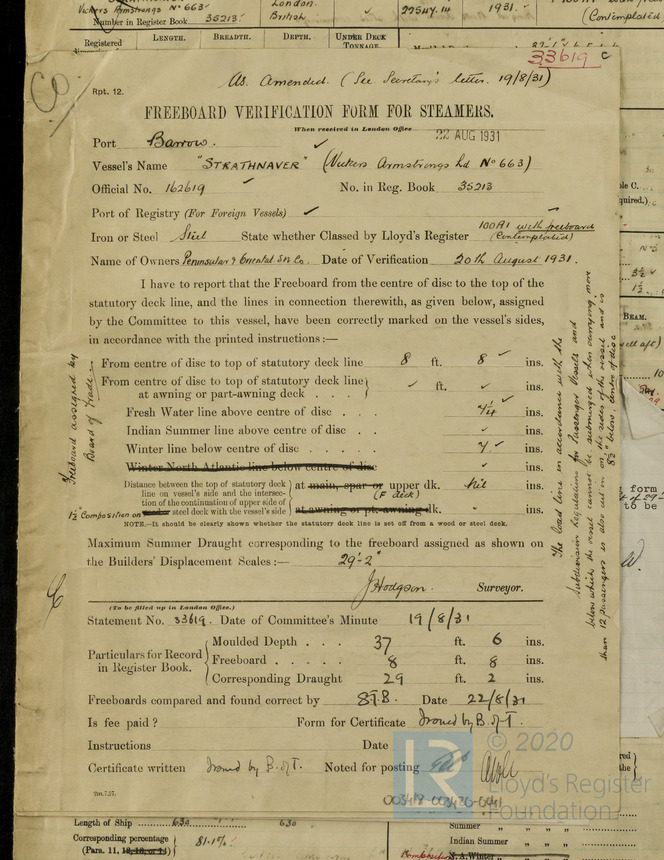 Vickers Armstrongs Nº 663
London.
British
1931.
(Contemplated
Number in Register Book 35213
Registered
LENGTH. BREADTH. DEPTH. UNDER DECK TONNAGE.
33619
Rpt. 12.
As. Amended. (See Secretary's letter. 19/8/31)
FREEBOARD VERIFICATION FORM FOR STEAMERS.
When received in London Office 22 AUG 1931
Port Barrow.
Vessel's Name "STRATHNAVER" (Vickers Armstrongs Ltd Nº 663)
Official No. 162619 No. in Reg. Book 35213
Port of Registry (For Foreign Vessels)
100A1 with freeboard
Iron or Steel Steel State whether Classed by Lloyd's Register (Contemplated)
Name of Owners Peninsular & Oriental S.N. Co. Date of Verification 20th August 1931.
I have to report that the Freeboard from the centre of disc to the top of the
statutory deck line, and the lines in connection therewith, as given below, assigned
by the Committee to this vessel, have been correctly marked on the vessel's sides,
in accordance with the printed instructions:—
From centre of disc to top of statutory deck line 8 ft. 8 ins.
From centre of disc to top of statutory deck line
at awning or part-awning deck . . ft. ins.
Fresh Water line above centre of disc . . . ins.
Indian Summer line above centre of disc . . ins.
Winter line below centre of disc . . . ins.
Winter North Atlantic line below centre of disc ins.
Distance between the top of statutory deck
line on vessel's side and the intersec-
tion of the continuation of upper side of
steel deck with the vessel's side
at main, spar or upper dk. Nil ins.
(F deck)
at awning or pt.-awning dk. ins.
1½" Composition on
NOTE.—It should be clearly shown whether the statutory deck line is set off from a wood or steel deck.
Freeboard assigned by
Board of Trade
Maximum Summer Draught corresponding to the freeboard assigned as shown on
the Builders' Displacement Scales :— 29'-2"
J Hodgson. Surveyor.
The load line in accordance with the
Subdivision Regulations for Passenger Vessels and
below which the vessel cannot be submerged when carrying more
than 12 passengers is also cut in on the sides of the vessel and is
8½" below centre of disc
(To be filled up in London Office.)
Statement No. 33619. Date of Committee's Minute 19/8/31
Particulars for Record
in Register Book.
Moulded Depth . . . 37 ft. 6 ins.
Freeboard . . . . . 8 ft. 8 ins.
Corresponding Draught 29 ft. 2 ins.
Freeboards compared and found correct by Date 22/8/31
Is fee paid ? Form for Certificate Issued by B. of T.
Instructions Date
Certificate written Issued by B. of T. Noted for posting
2m.7.27.
LR
© 2020
Lloyd's Register
Foundation
003418-003420-0041
Length of Ship 630 630
Corresponding percentage
(Para. 11, 81.1%
Summer
Indian Summer
N.A. Winter
BEAM.
form
to be